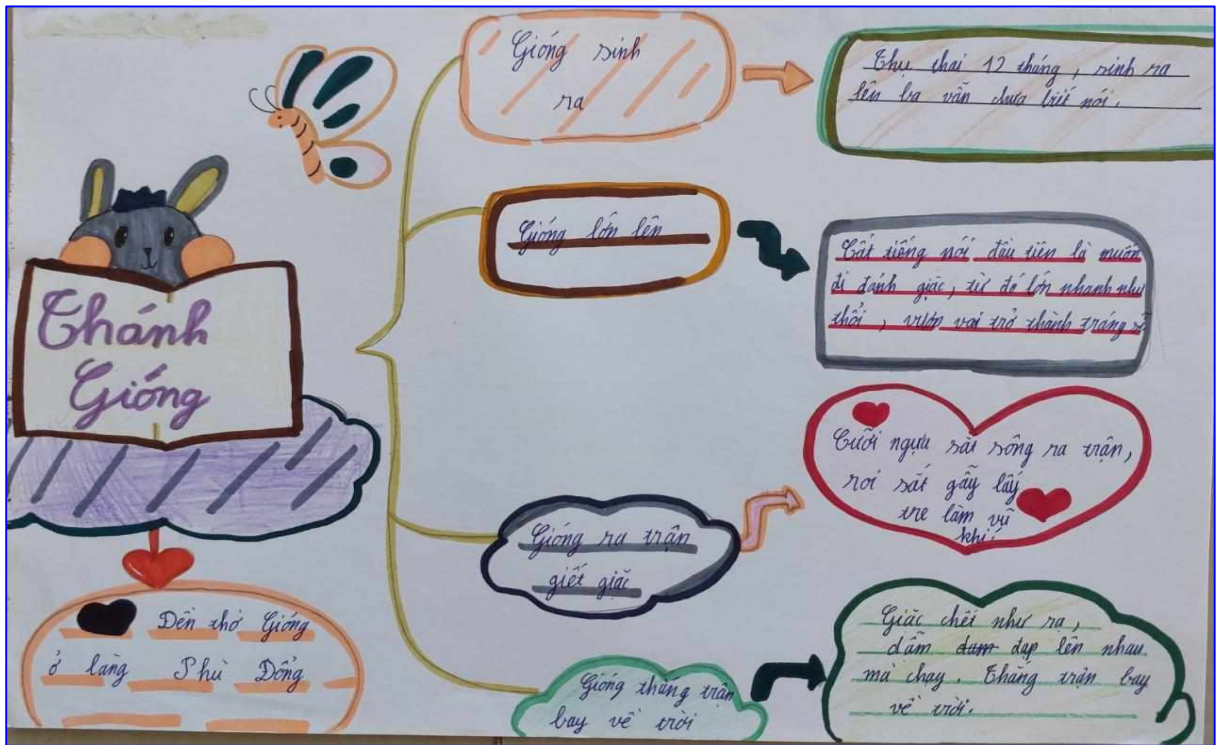 Thánh
Gióng
Đền thờ Gióng
ở làng Phù Đổng
Gióng sinh
ra
Thụ thai 12 tháng, sinh ra
lên ba vẫn chưa biết nói.
Gióng lớn lên
Cất tiếng nói đầu tiên là muốn
đi đánh giặc, từ đó lớn nhanh như
thổi, vươn vai trở thành tráng sĩ
Gióng ra trận
giết giặc
Cưỡi ngựa sắt sông ra trận,
roi sắt gãy lấy
tre làm vũ
khí.
Gióng thắng trận
bay về trời
Giặc chết như rạ,
dẫm dam đạp lên nhau
mà chạy. Thắng trận bay
về trời.